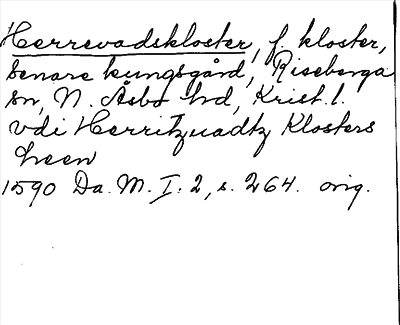 Herrevadskloster, f. kloster,
senare kungsgård, Riseberga
sn, N. Åsbo hd, Krist. l.
vdi Herritzuadtz Klosters
Leen
1590 Da. M. I. 2, s. 264. orig.